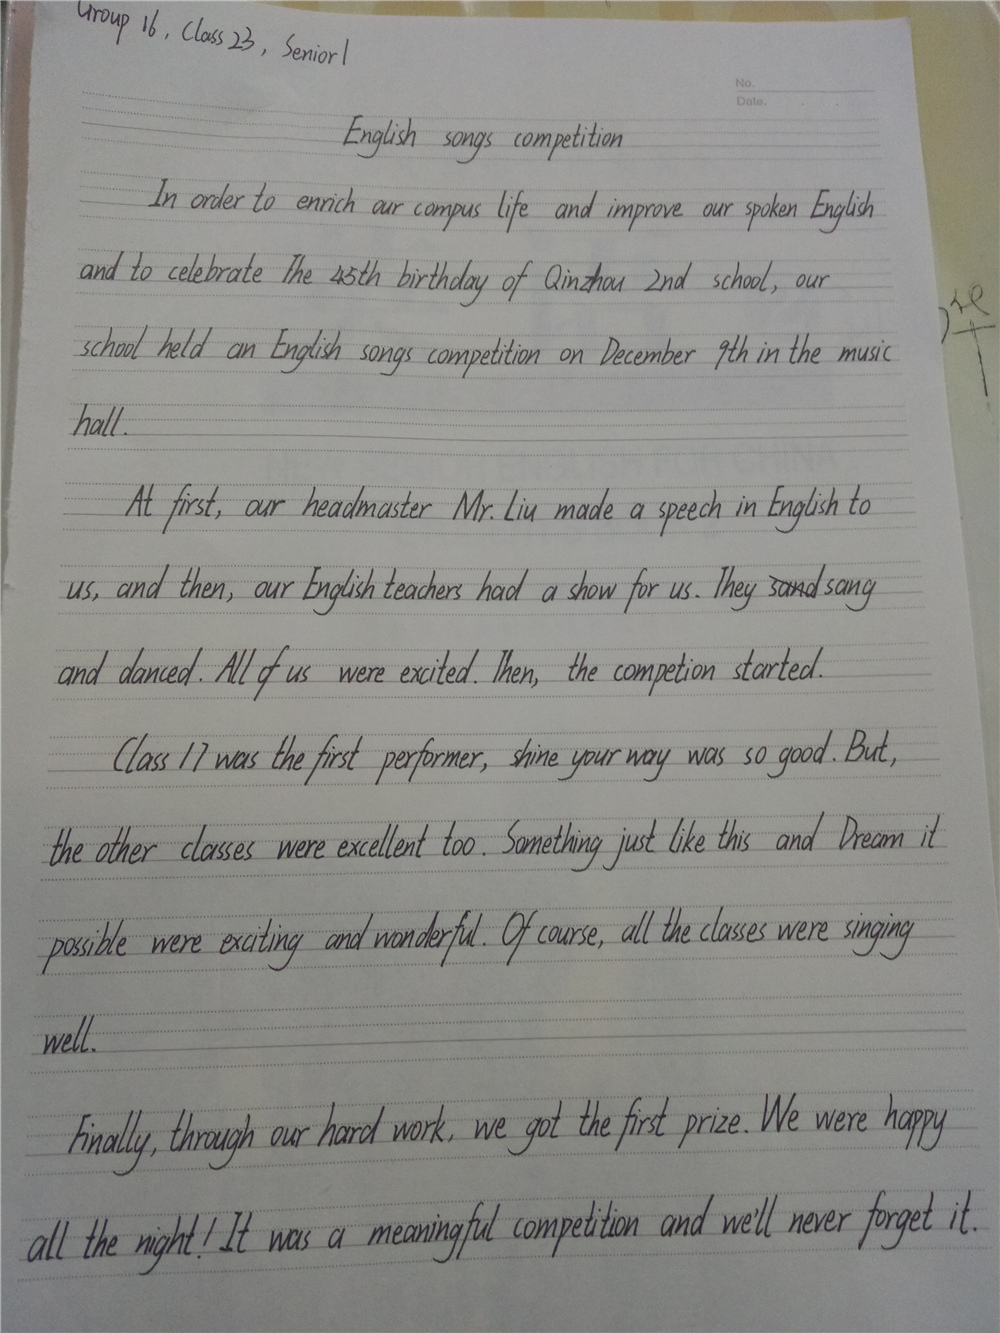 Group 16, Class 23, Senior 1
No.
Date.
English songs competition
In order to enrich our compus life and improve our spoken English
and to celebrate The 45th birthday of Qinzhou 2nd school, our
school held an English songs competition on December 9th in the music
hall.
At first, our headmaster Mr. Liu made a speech in English to
us, and then, our English teachers had a show for us. They sand sang
and danced. All of us were excited. Then, the competion started.
Class 17 was the first performer, shine your way was so good. But,
the other classes were excellent too. Something just like this and Dream it
possible were exciting and wonderful. Of course, all the classes were singing
well.
Finally, through our hard work, we got the first prize. We were happy
all the night! It was a meaningful competition and we'll never forget it.